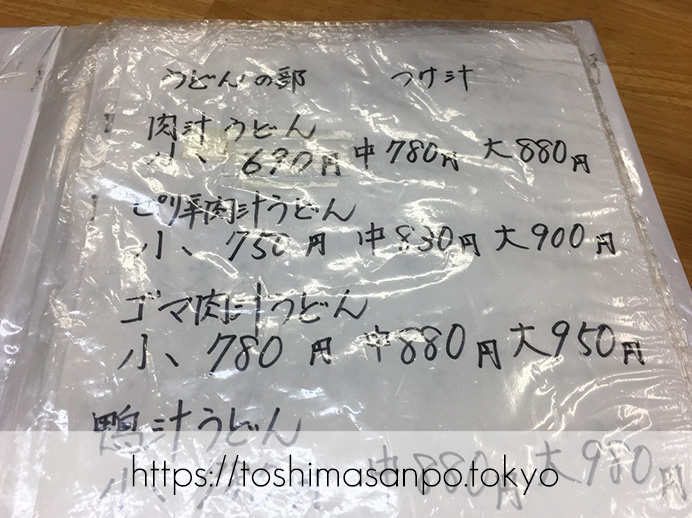 うどんの部 つけ汁
肉汁うどん
小、690円 中780円 大880円
ピリ辛肉汁うどん
小、750円 中830円 大900円
ゴマ肉汁うどん
小、780円 中880円 大950円
鴨汁うどん
小、 中880円 大980円
https://toshimasanpo.tokyo